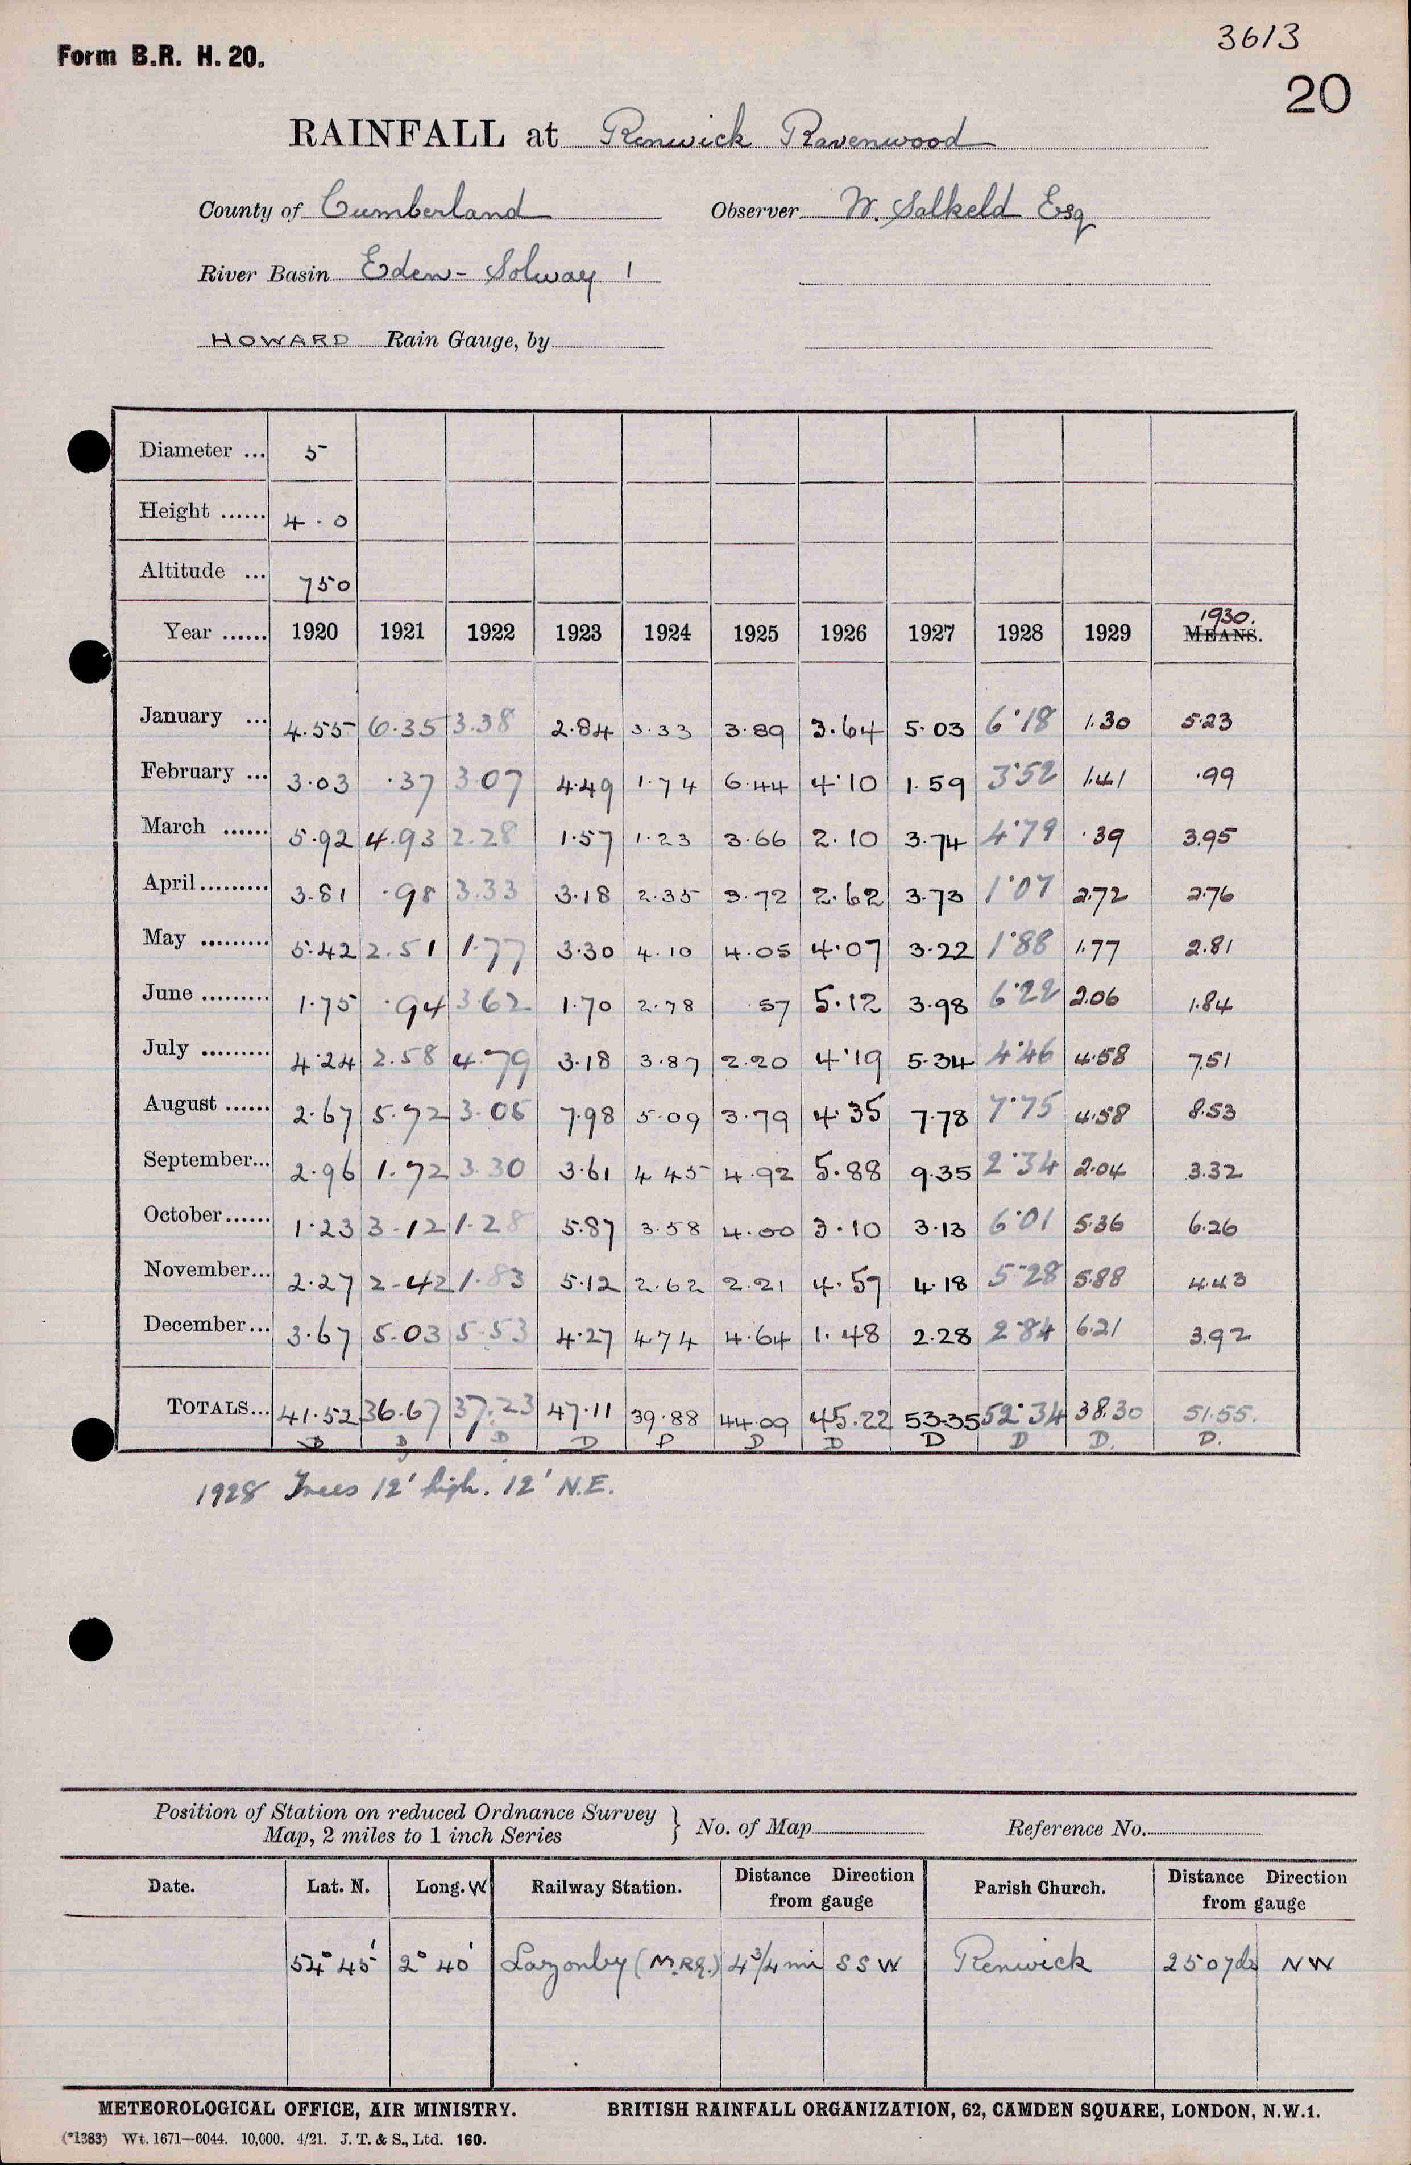 3613
Form B.R. H. 20.
20
RAINFALL at Renwick Ravenwood
County of Cumberland Observer W. Salkeld Esq
River Basin Eden - Solway 1
HOWARD Rain Gauge, by
Diameter ... 5
Height ...... 4.0
Altitude ... 750
Year ...... 1920 1921 1922 1923 1924 1925 1926 1927 1928 1929 1930. MEANS.
January ... 4.55 6.35 3.38 2.84 3.33 3.89 3.64 5.03 6.18 1.30 5.23
February ... 3.03 .37 3.07 4.49 1.74 6.44 4.10 1.59 3.52 1.41 .99
March ...... 5.92 4.93 2.28 1.57 1.23 3.66 2.10 3.74 4.79 .39 3.95
April ......... 3.81 .98 3.33 3.18 2.35 3.72 2.62 3.73 1.07 2.72 2.76
May ......... 5.42 2.51 1.77 3.30 4.10 4.05 4.07 3.22 1.88 1.77 2.81
June ......... 1.75 .94 3.62 1.70 2.78 .57 5.12 3.98 6.22 2.06 1.84
July ......... 4.24 2.58 4.79 3.18 3.87 2.20 4.19 5.34 4.46 4.58 7.51
August ...... 2.67 5.72 3.05 7.98 5.09 3.79 4.35 7.78 7.75 4.58 8.53
September... 2.96 1.72 3.30 3.61 4.45 4.92 5.88 9.35 2.34 2.04 3.32
October...... 1.23 3.12 1.28 5.87 3.58 4.00 3.10 3.13 6.01 5.36 6.26
November... 2.27 2.42 1.83 5.12 2.62 2.21 4.57 4.18 5.28 5.88 4.43
December... 3.67 5.03 5.53 4.27 4.74 4.64 1.48 2.28 2.84 6.21 3.92
TOTALS... 41.52 36.67 37.23 47.11 39.88 44.09 45.22 53.35 52.34 38.30 51.55.
D D D D P D D D D D. D.
1928 Trees 12' high. 12' N.E.
Position of Station on reduced Ordnance Survey
Map, 2 miles to 1 inch Series } No. of Map Reference No.
Date. Lat. N. Long. W Railway Station. Distance Direction from gauge Parish Church. Distance Direction from gauge
54° 45' 2° 40' Lazonby (M.RY.) 4 3/4 mi SSW Renwick 250 yds NW
METEOROLOGICAL OFFICE, AIR MINISTRY. BRITISH RAINFALL ORGANIZATION, 62, CAMDEN SQUARE, LONDON, N.W.1.
(*1383) Wt. 1671—6044. 10,000. 4/21. J. T. & S., Ltd. 160.